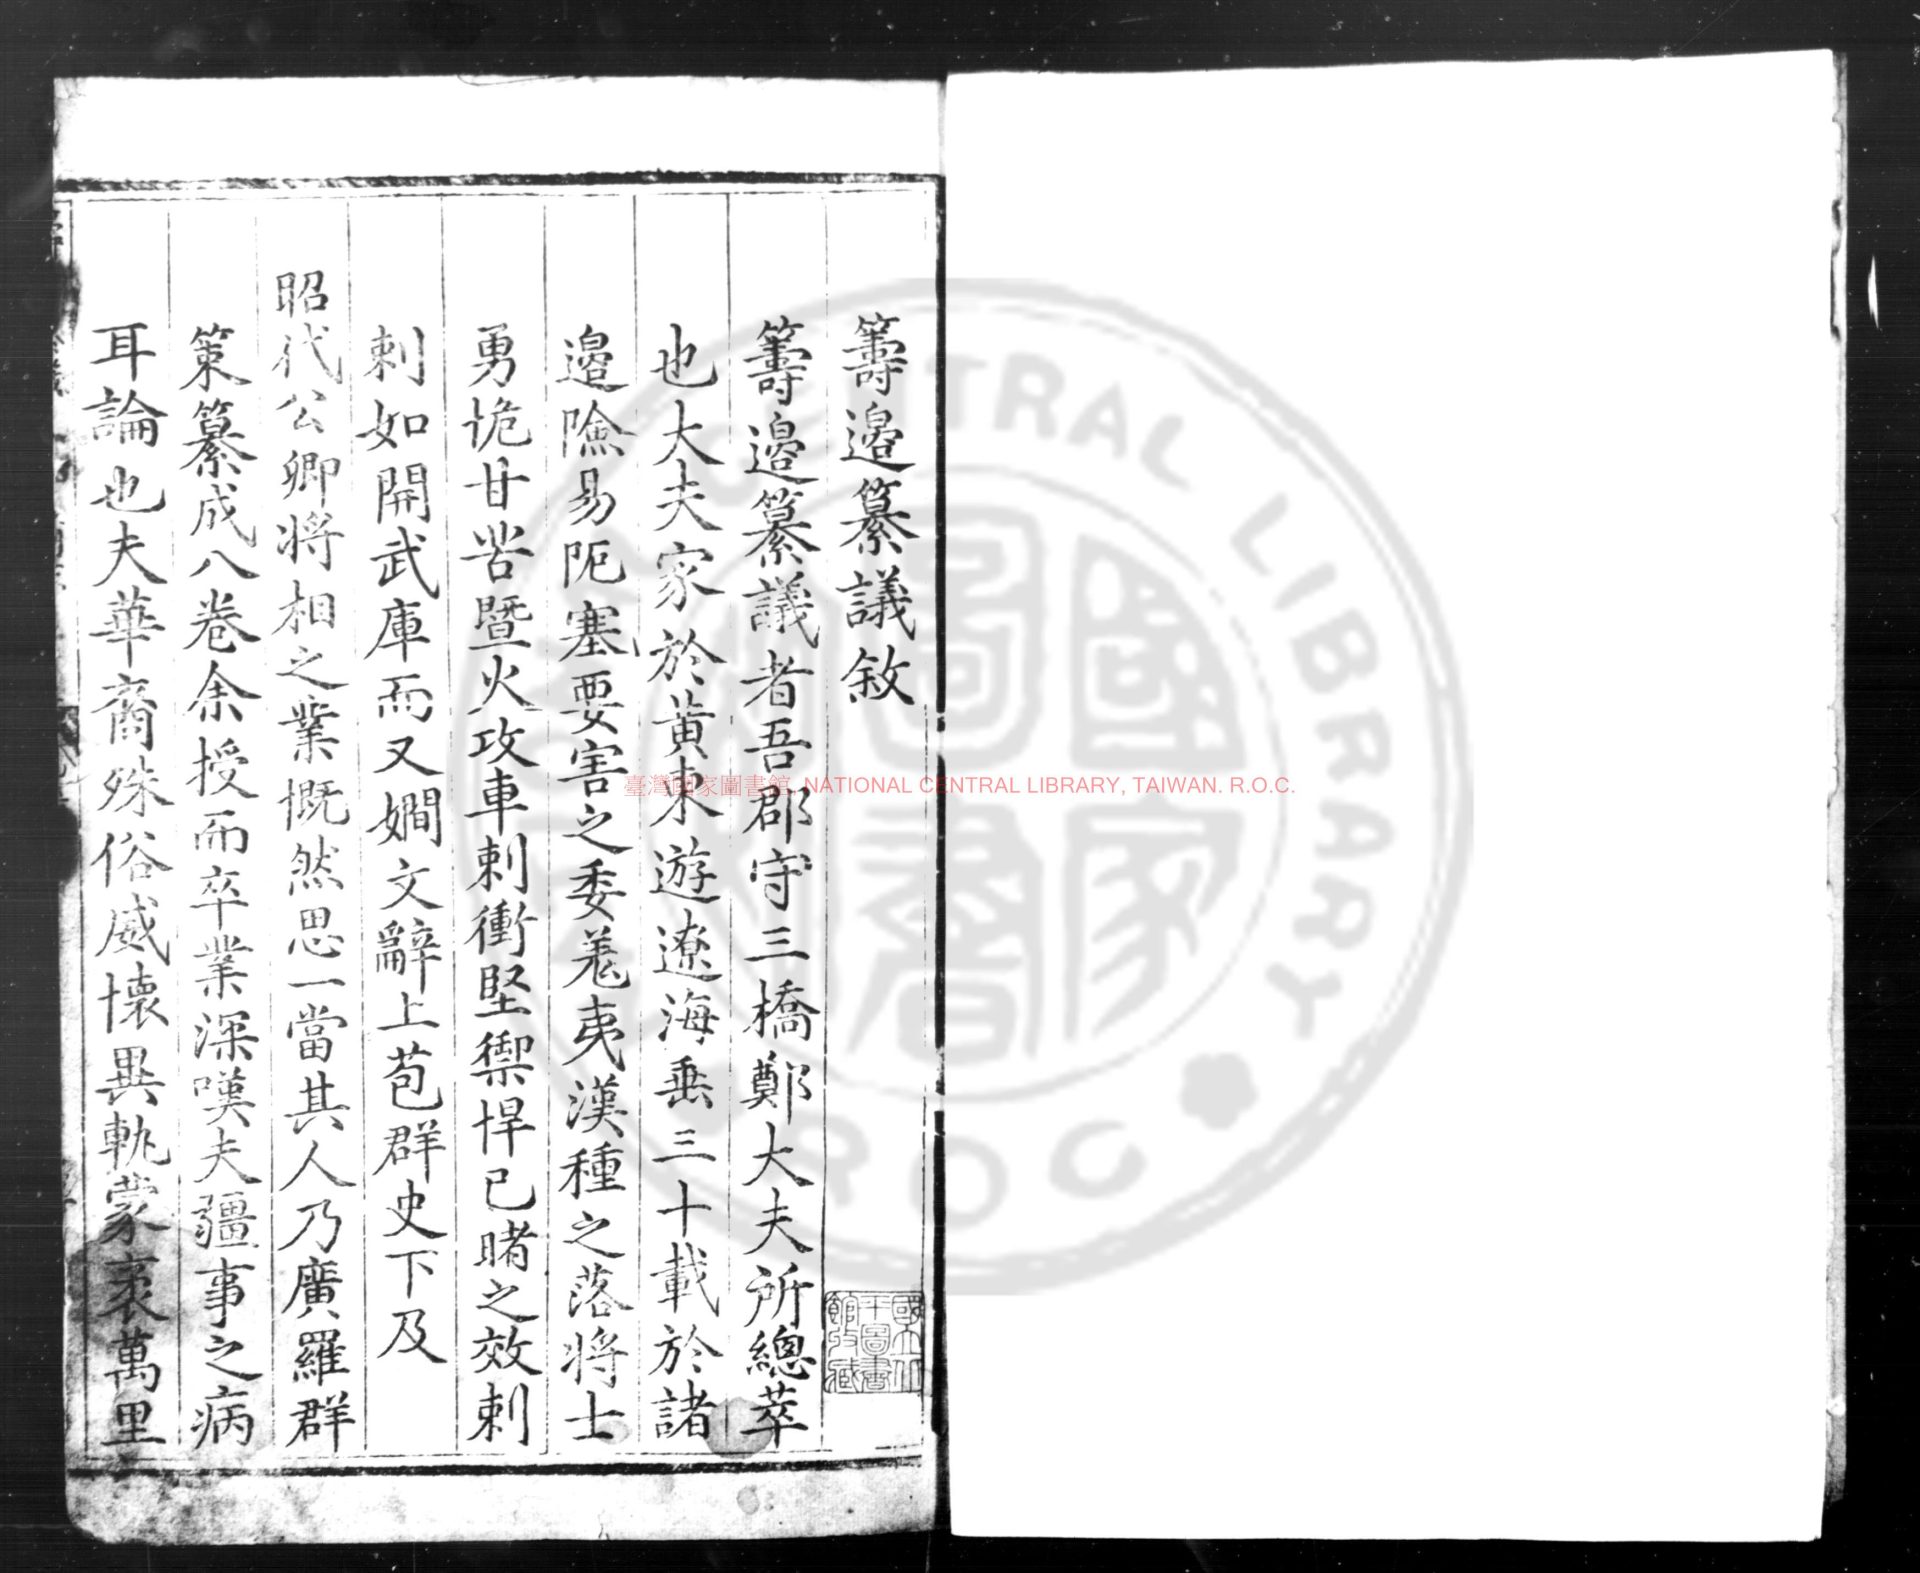 籌邉纂議敘
籌邉纂議者吾郡守三橋鄭大夫所總萃
也大夫家於黄東遊遼海垂三十載於諸
邉險易阨塞要害之委羗夷漢種之落將士
勇恑甘苦暨火攻車刺衝堅禦悍已睹之效刺
刺如開武庫而又嫺文辭上苞群史下及
昭代公卿將相之業慨然思一當其人乃廣羅群
策纂成八卷余授而卒業深嘆夫疆事之病
耳論也夫華裔殊俗威懷異軌蒙袤萬里
國立北
平圖書
館收藏
臺灣國家圖書館, NATIONAL CENTRAL LIBRARY, TAIWAN. R.O.C.
CENTRAL LIBRARY
R O C
國家
圖書